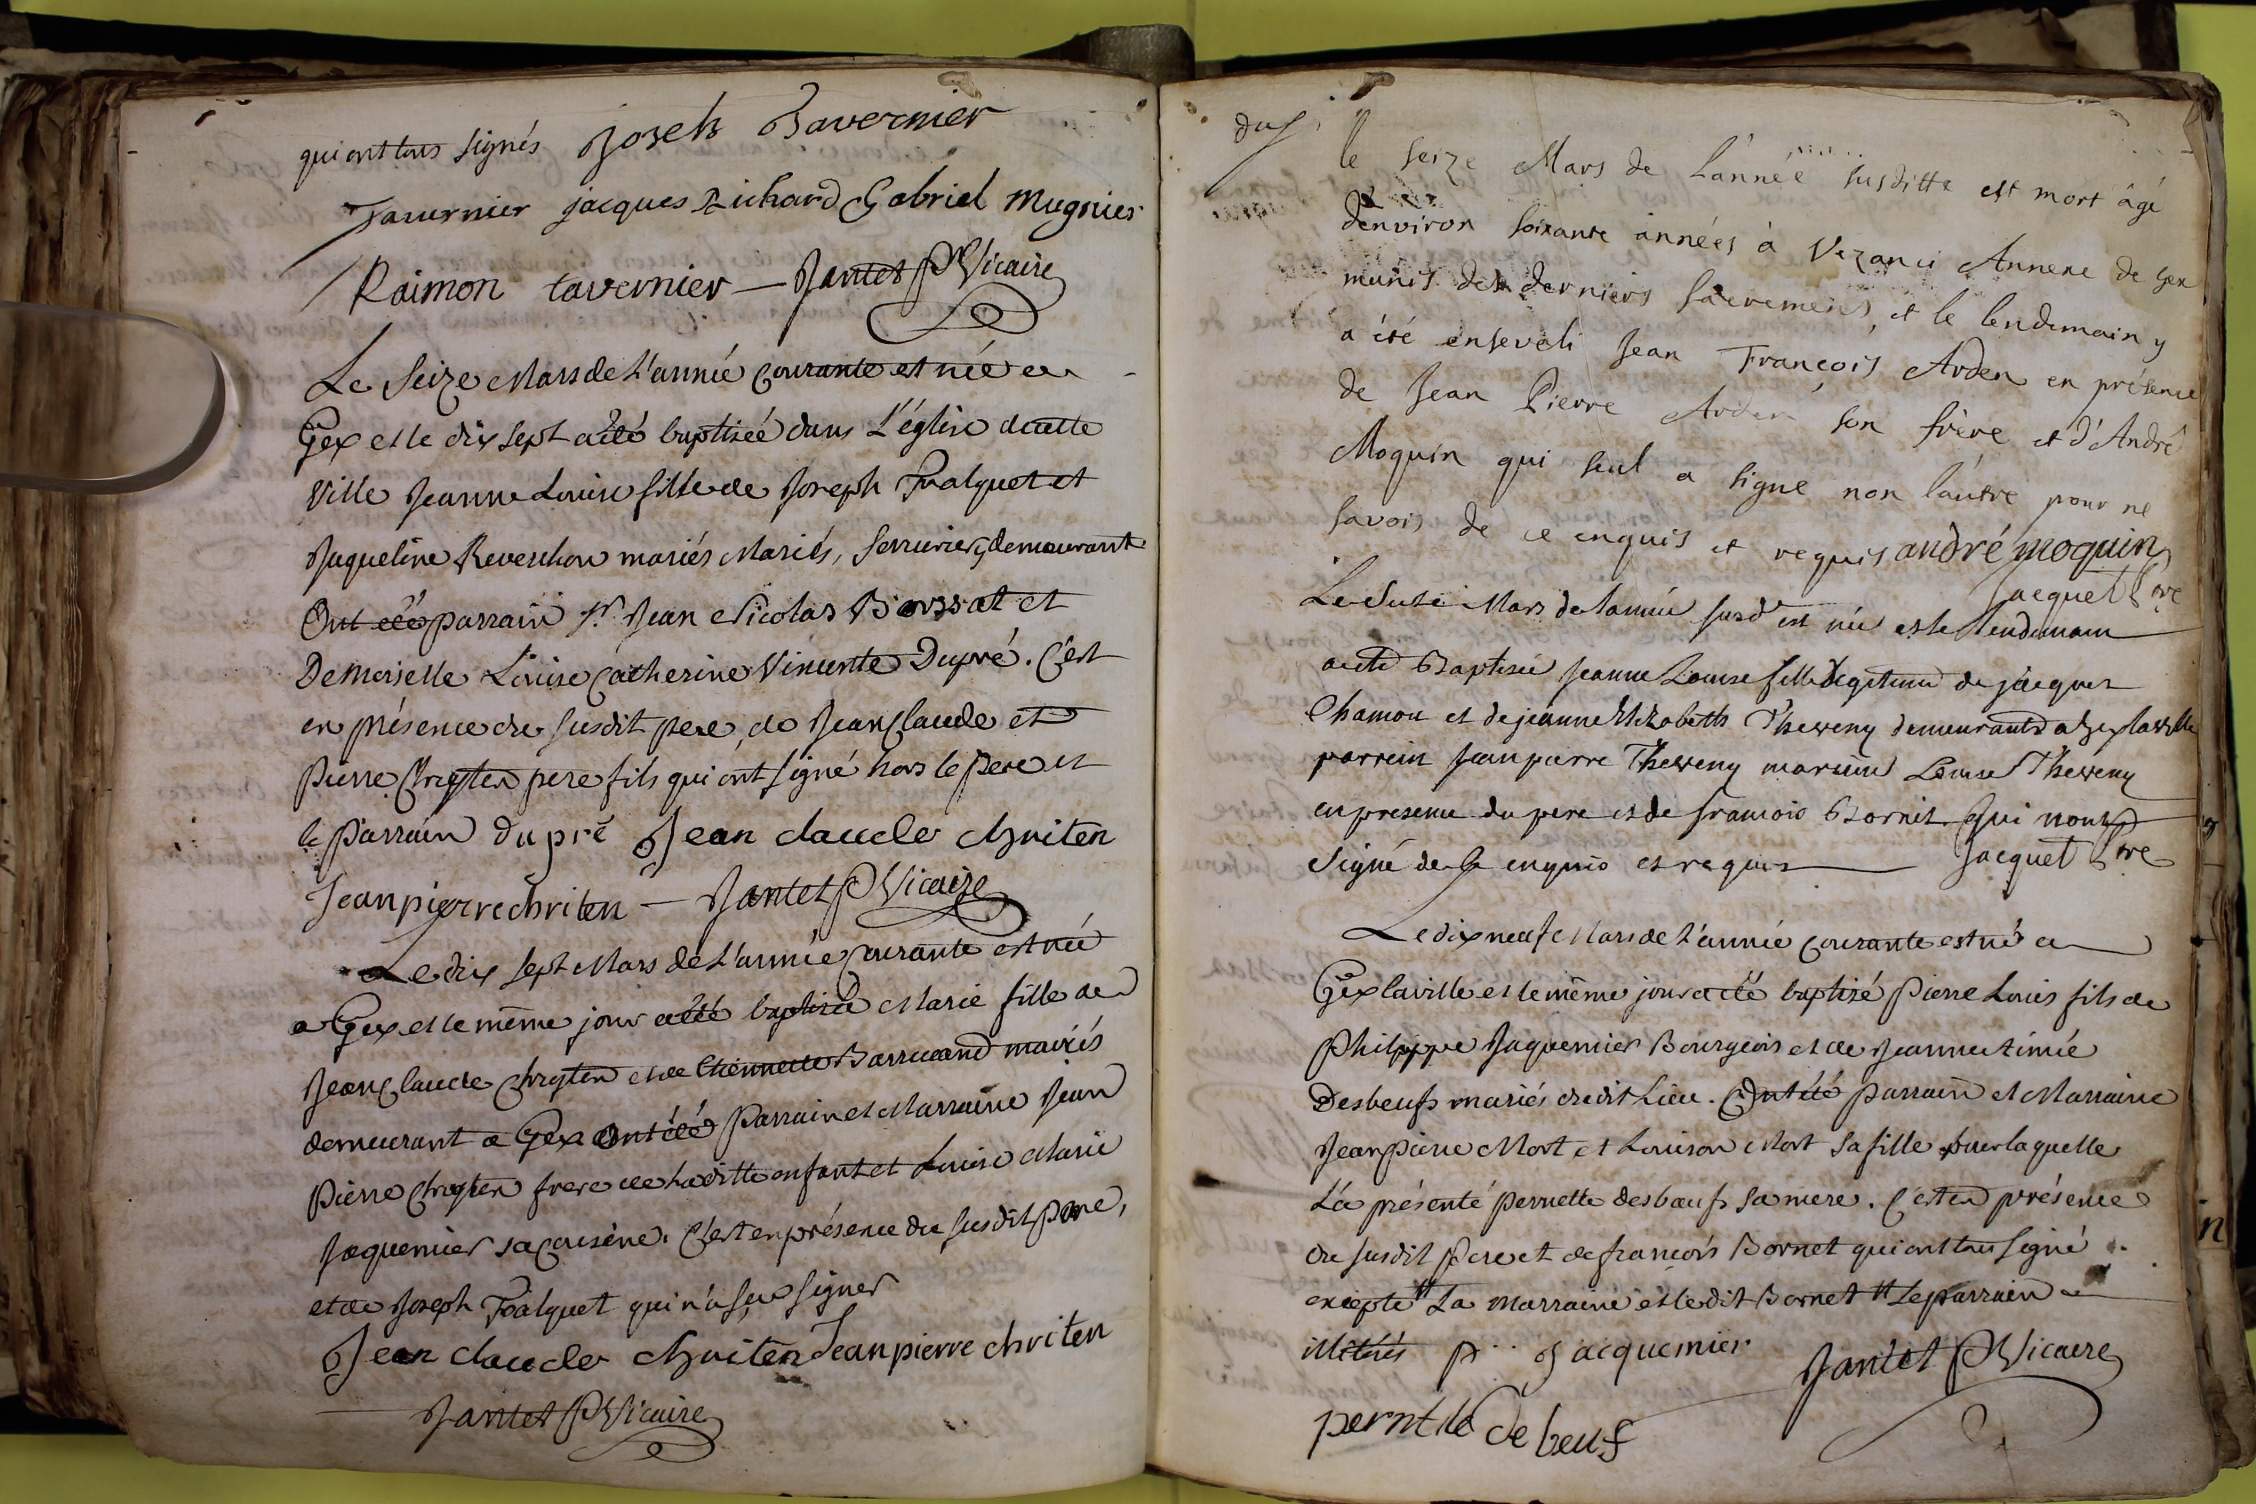 qui ont tous signés Joseh Tavernier
Tavernier jacques Richard Gabriel mugnier
Raimon tavernier — Jantet P. Vicaire
Le Seize Mars de L'année Courante est née a
Gex et le dix sept a été baptiseé dans L'église de cette
Ville Jeanne Louise fille de Joseph Falquet et
Jaqueline Reverchon mariés Mariés, Serrurier, demeurant
Ont été parrain Sr. Jean Nicolas Borssat et
Demoiselle Louise Catherine Vincente Dupré. C'est
en présence du susdit pere, de Jean Claude et
Pierre Chryten pere fils qui ont signé hors le Pere et
le Parrain dupré Jean claude chriten
Jean pierre chriten — Jantet P Vicaire
Le dix sept Mars de L'année Courante est née
a Gex et le même jour a été baptisée Marie fille de
Jean Claude Chryten et de Etiennette Barruand mariés
demeurant a Gex Ont été Parrain et Marraine Jean
Pierre Chryten frere de Laditte enfant et Louise Marie
Jaquemier sa Cousine. C'est en présence du susdit Pere,
et de Joseph Falquet qui n'a sçu signer
Jean claude chriten Jean pierre chriten
Jantet P Vicaire
le seize Mars de L'année susditte est mort âgé
d'environ soixante années à Vezanci Annexe de Gex
munis des derniers sacremens, et le lendemain y
a été enseveli Jean François Arden en présence
de Jean Pierre Arden son frère et d'André
Moquin qui seul a signé non l'autre pour ne
savoir de ce enquis et requis andré moquin
Jacquet Ptre
Le Seize Mars de lannée susd est née et le lendemain
a eté Baptisée Jeanne Louise fille legitime de jacques
Chamou et de jeanne Elizabeth Theveny demeurants a Gex la ville
parrein jean pierre Theveny marreine Louise Theveny
en presence du pere et de francois Bornet qui n'ont
signé de ce enquis et requis — Jacquet Ptre
Le dix neuf Mars de L'année Courante est né a
Gex la ville et le même jour a été baptisé Pierre Louis fils de
Philippe Jaquemier Bourgeois et de Jeanne Aimée
Desbeufs mariés dudit Lieu. Ont été parrain et Marraine
Jean Pierre Mort et Louison Mort sa fille pour laquelle
L'a présenté pernette desbœufs sa mere. C'est en présence
du susdit Pere et de françois Bornet qui ont tous signé
excepté La marraine et ledit Bornet Le parrain
illetrés p Jacquemier Jantet P Vicaire
debeuf